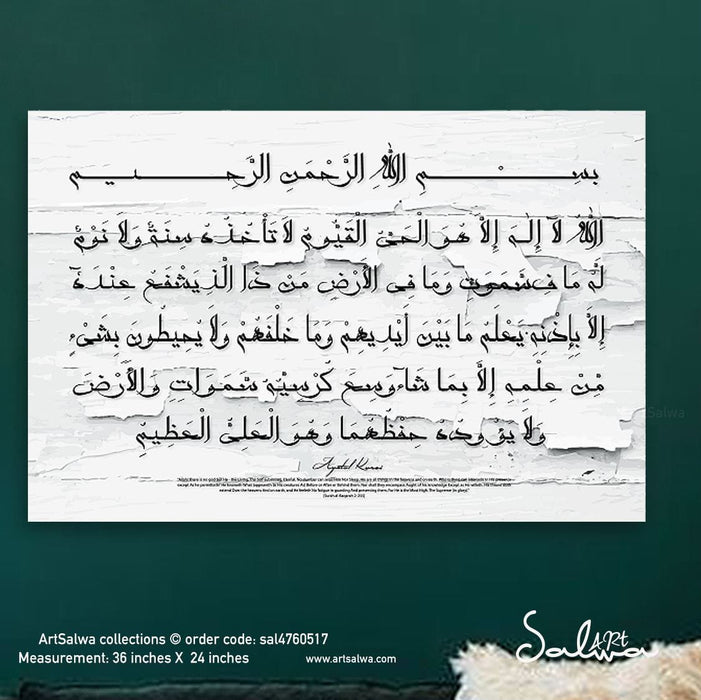 بِسْمِ اللهِ الرَّحْمَنِ الرَّحِيمِ
اللهُ لَآ إِلَهَ إِلَّا هُوَ الْحَيُّ الْقَيُّومُ لَا تَأْخُذُهُ سِنَةٌ وَلَا نَوْمٌ
لَّهُ مَا وَمَا فِي الْأَرْضِ مَنْ ذَا الَّذِي يَشْفَعُ عِنْدَهُ
إِلَّا بِإِذْنِهِ يَعْلَمُ مَا بَيْنَ أَيْدِيهِمْ وَمَا خَلْفَهُمْ وَلَا يُحِيطُونَ بِشَيْءٍ
مِّنْ عِلْمِهِ إِلَّا بِمَا شَآءَ وَسِعَ كُرْسِيُّهُ سَّمَوَاتِ وَالْأَرْضَ
وَلَا يَؤُودُهُ حِفْظُهُمَا وَهُوَ الْعَلِيُّ الْعَظِيمُ
Ayatul Kursi
ArtSalwa collections © order code: sal4760517
Measurement: 36 inches X 24 inches
www.artsalwa.com
Salwa ARt